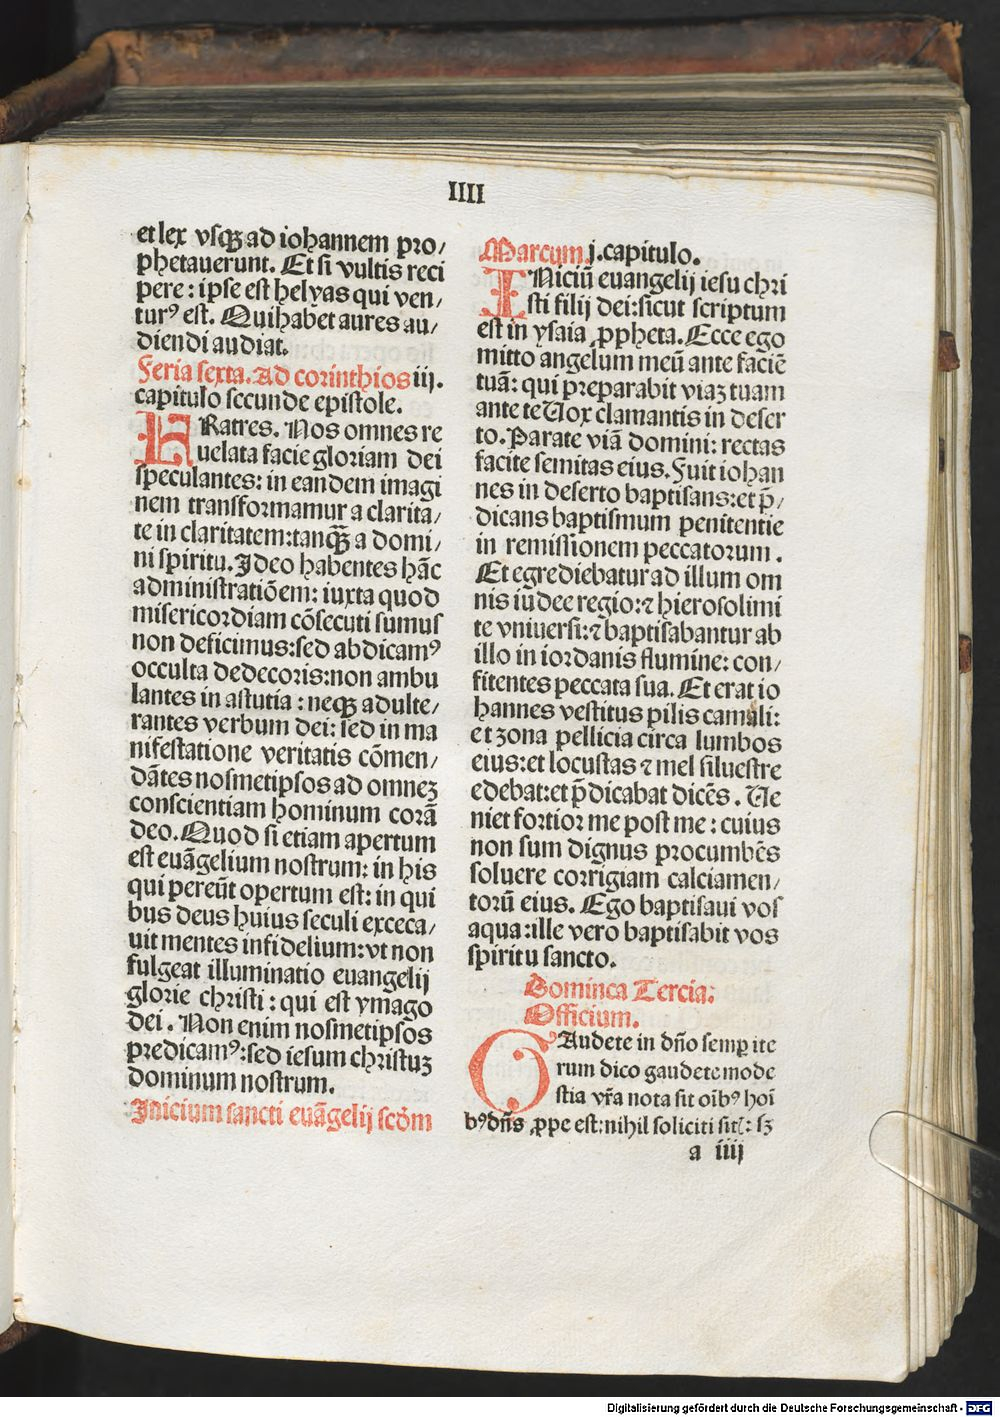 IIII
et lex vsqꝫ ad iohannem pro/
phetauerunt. Et si vultis reci
pere: ipse est helyas qui ven/
turꝰ est. Qui habet aures au/
diendi audiat.
Feria sexta. Ad corinthios iij.
capitulo secunde epistole.
FRatres. Nos omnes re
uelata facie gloriam dei
speculantes: in eandem imagi
nem transformamur a clarita/
te in claritatem: tanqꝫ a domi/
ni spiritu. Ideo habentes hāc
administratiōem: iuxta quod
misericordiam cōsecuti sumus
non deficimus: sed abdicamꝰ
occulta dedecoris: non ambu
lantes in astutia: neqꝫ adulte/
rantes verbum dei: sed in ma
nifestatione veritatis cōmen/
dātes nosmetipsos ad omneꝫ
conscientiam hominum corā
deo. Quod si etiam apertum
est euāgelium nostrum: in his
qui pereūt opertum est: in qui
bus deus huius seculi exceca/
uit mentes infidelium: vt non
fulgeat illuminatio euangelij
glorie christi: qui est ymago
dei. Non enim nosmetipsos
predicamꝰ: sed iesum christuꝫ
dominum nostrum.
Inicium sancti euāgelij scōm
Marcum j. capitulo.
INiciū euangelij iesu chri
sti filij dei: sicut scriptum
est in ysaia ꝓpheta. Ecce ego
mitto angelum meū ante faciē
tuā: qui preparabit viaꝫ tuam
ante te Vox clamantis in deser
to. Parate viā domini: rectas
facite semitas eius. Fuit iohan
nes in deserto baptisans: et p̄/
dicans baptismum penitentie
in remissionem peccatorum.
Et egrediebatur ad illum om
nis iudee regio: ⁊ hierosolimi
te vniuersi: ⁊ baptisabantur ab
illo in iordanis flumine: con/
fitentes peccata sua. Et erat io
hannes vestitus pilis camali:
et zona pellicia circa lumbos
eius: et locustas ⁊ mel siluestre
edebat: et p̄dicabat dicēs. Ue
niet fortior me post me: cuius
non sum dignus procumbēs
soluere corrigiam calciamen/
torū eius. Ego baptisaui vos
aqua: ille vero baptisabit vos
spiritu sancto.
Dominca Tercia.
Officium.
GAudete in dn̄o semꝑ ite
rum dico gaudete mode
stia vr̄a nota sit oībꝰ hoī
bꝰ dn̄s ꝓpe est: nihil soliciti sitꝭ: sꝫ
a iiij
Digitalisierung gefördert durch die Deutsche Forschungsgemeinschaft - DFG